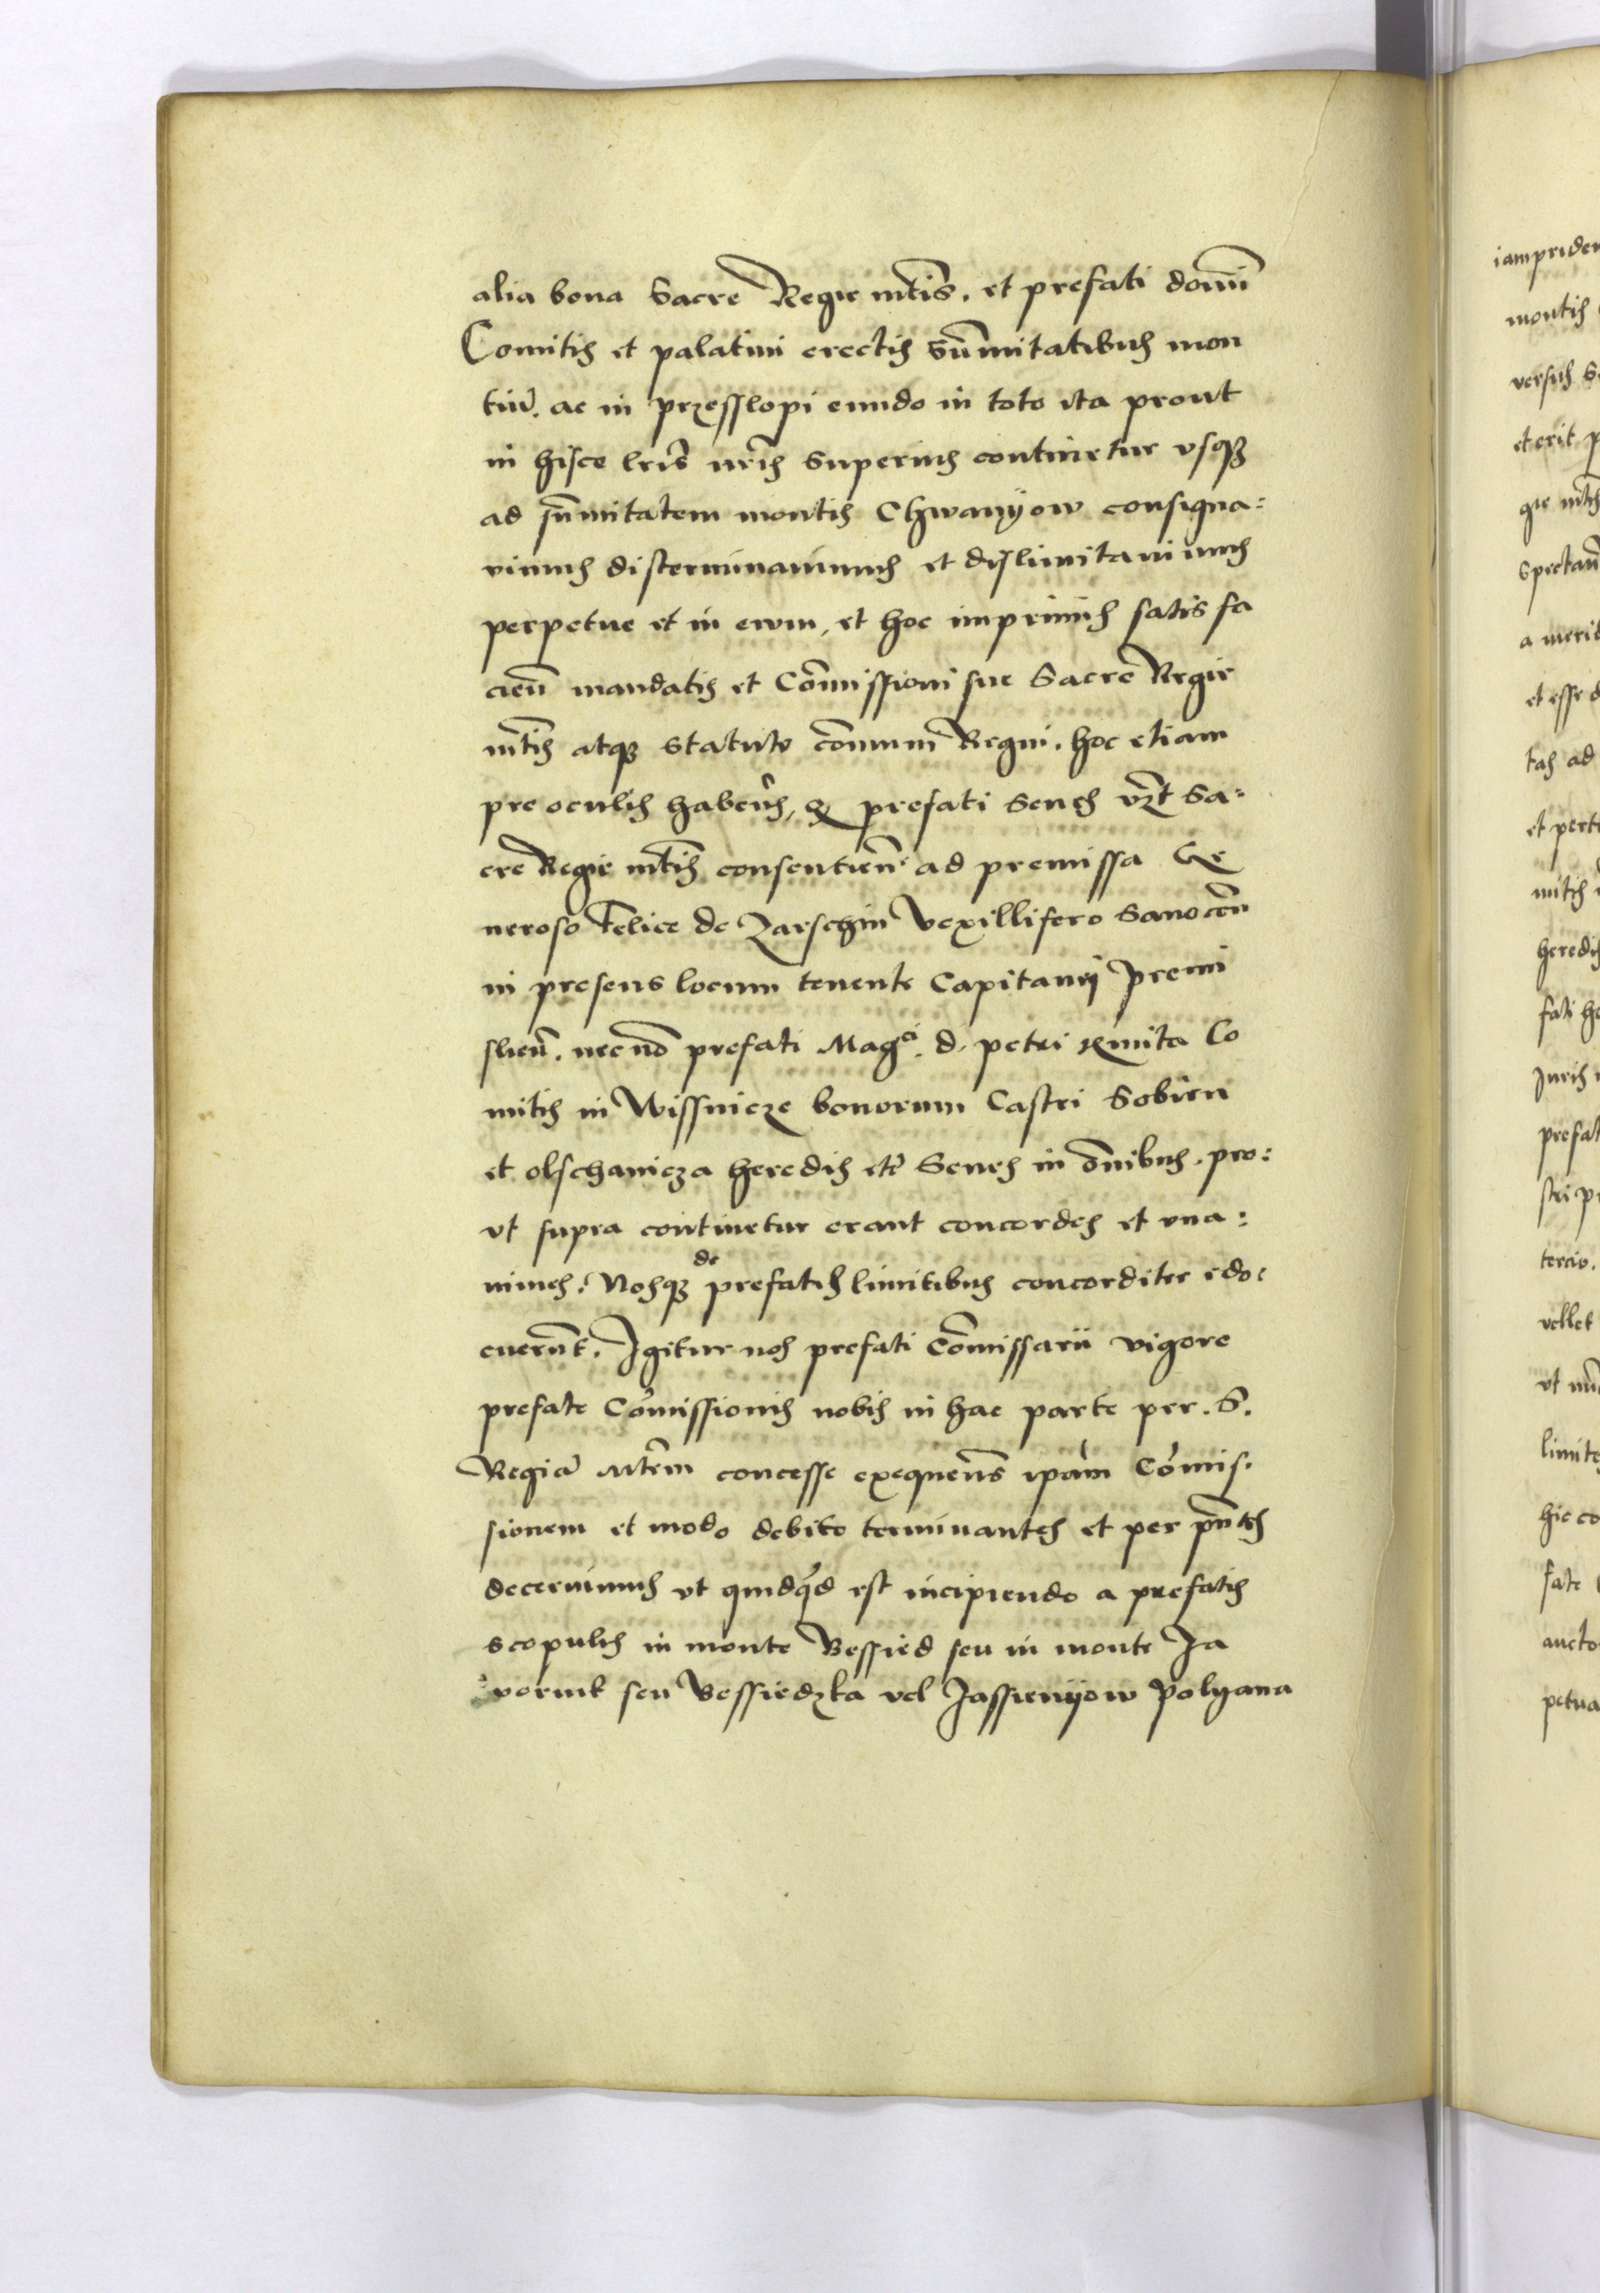 alia bona Sacre Regie mtis. et prefati domini
Comitis et palatini erectis Sumitatibus mon
tiu. ac in przesslopi eundo in toto ita prout
in hisce lris nris Superius continetur vsq3
ad sumitatem montis Chwanyow consigna:
vimus disterminavimus et dislimitavimus
perpetue et in ewm, et hoc imprimis satis fa
cien mandatis et Comissioni sue Sacre Regie
mtis atq3 statuto comuni Regni. hoc etiam
pre oculis habens, q prefati Senes vzt Sa:
cre Regie mtis consentien ad premissa Ge
neroso Felice de Zarschin Vexillifero Sanocen
in presens locum tenente Capitanij Premi
slien. nec no prefati Magci. d. petri kmita Co
mitis in Wissnicze bonorum Castri Sobien
et olschanicza heredis etc Senes in omibus. pro:
vt supra continetur erant concordes et vna:
nimes. Nosq3 de prefatis limitibus concorditer edo:
cuerunt. Igitur nos prefati Comissarii vigore
prefate Comissionis nobis in hac parte per. S.
Regia Mtem concesse exequens ipam Comis:
sionem et modo debito terminantes et per pntes
decernimus vt quidqd est incipiendo a prefatis
scopulis in monte Bessied seu in monte Ja
vornik seu Bessiedzka vel Jassienyow Polyana

iampriden
montis
versus S
et erit p
gie mtis
spectan
a merid
et esse d
tas ad
et perti
mitis
heredis
fati he
Juris
prefat
stri pr
tercio.
vellet
vt
limite
hic co
fate
aucto
petua